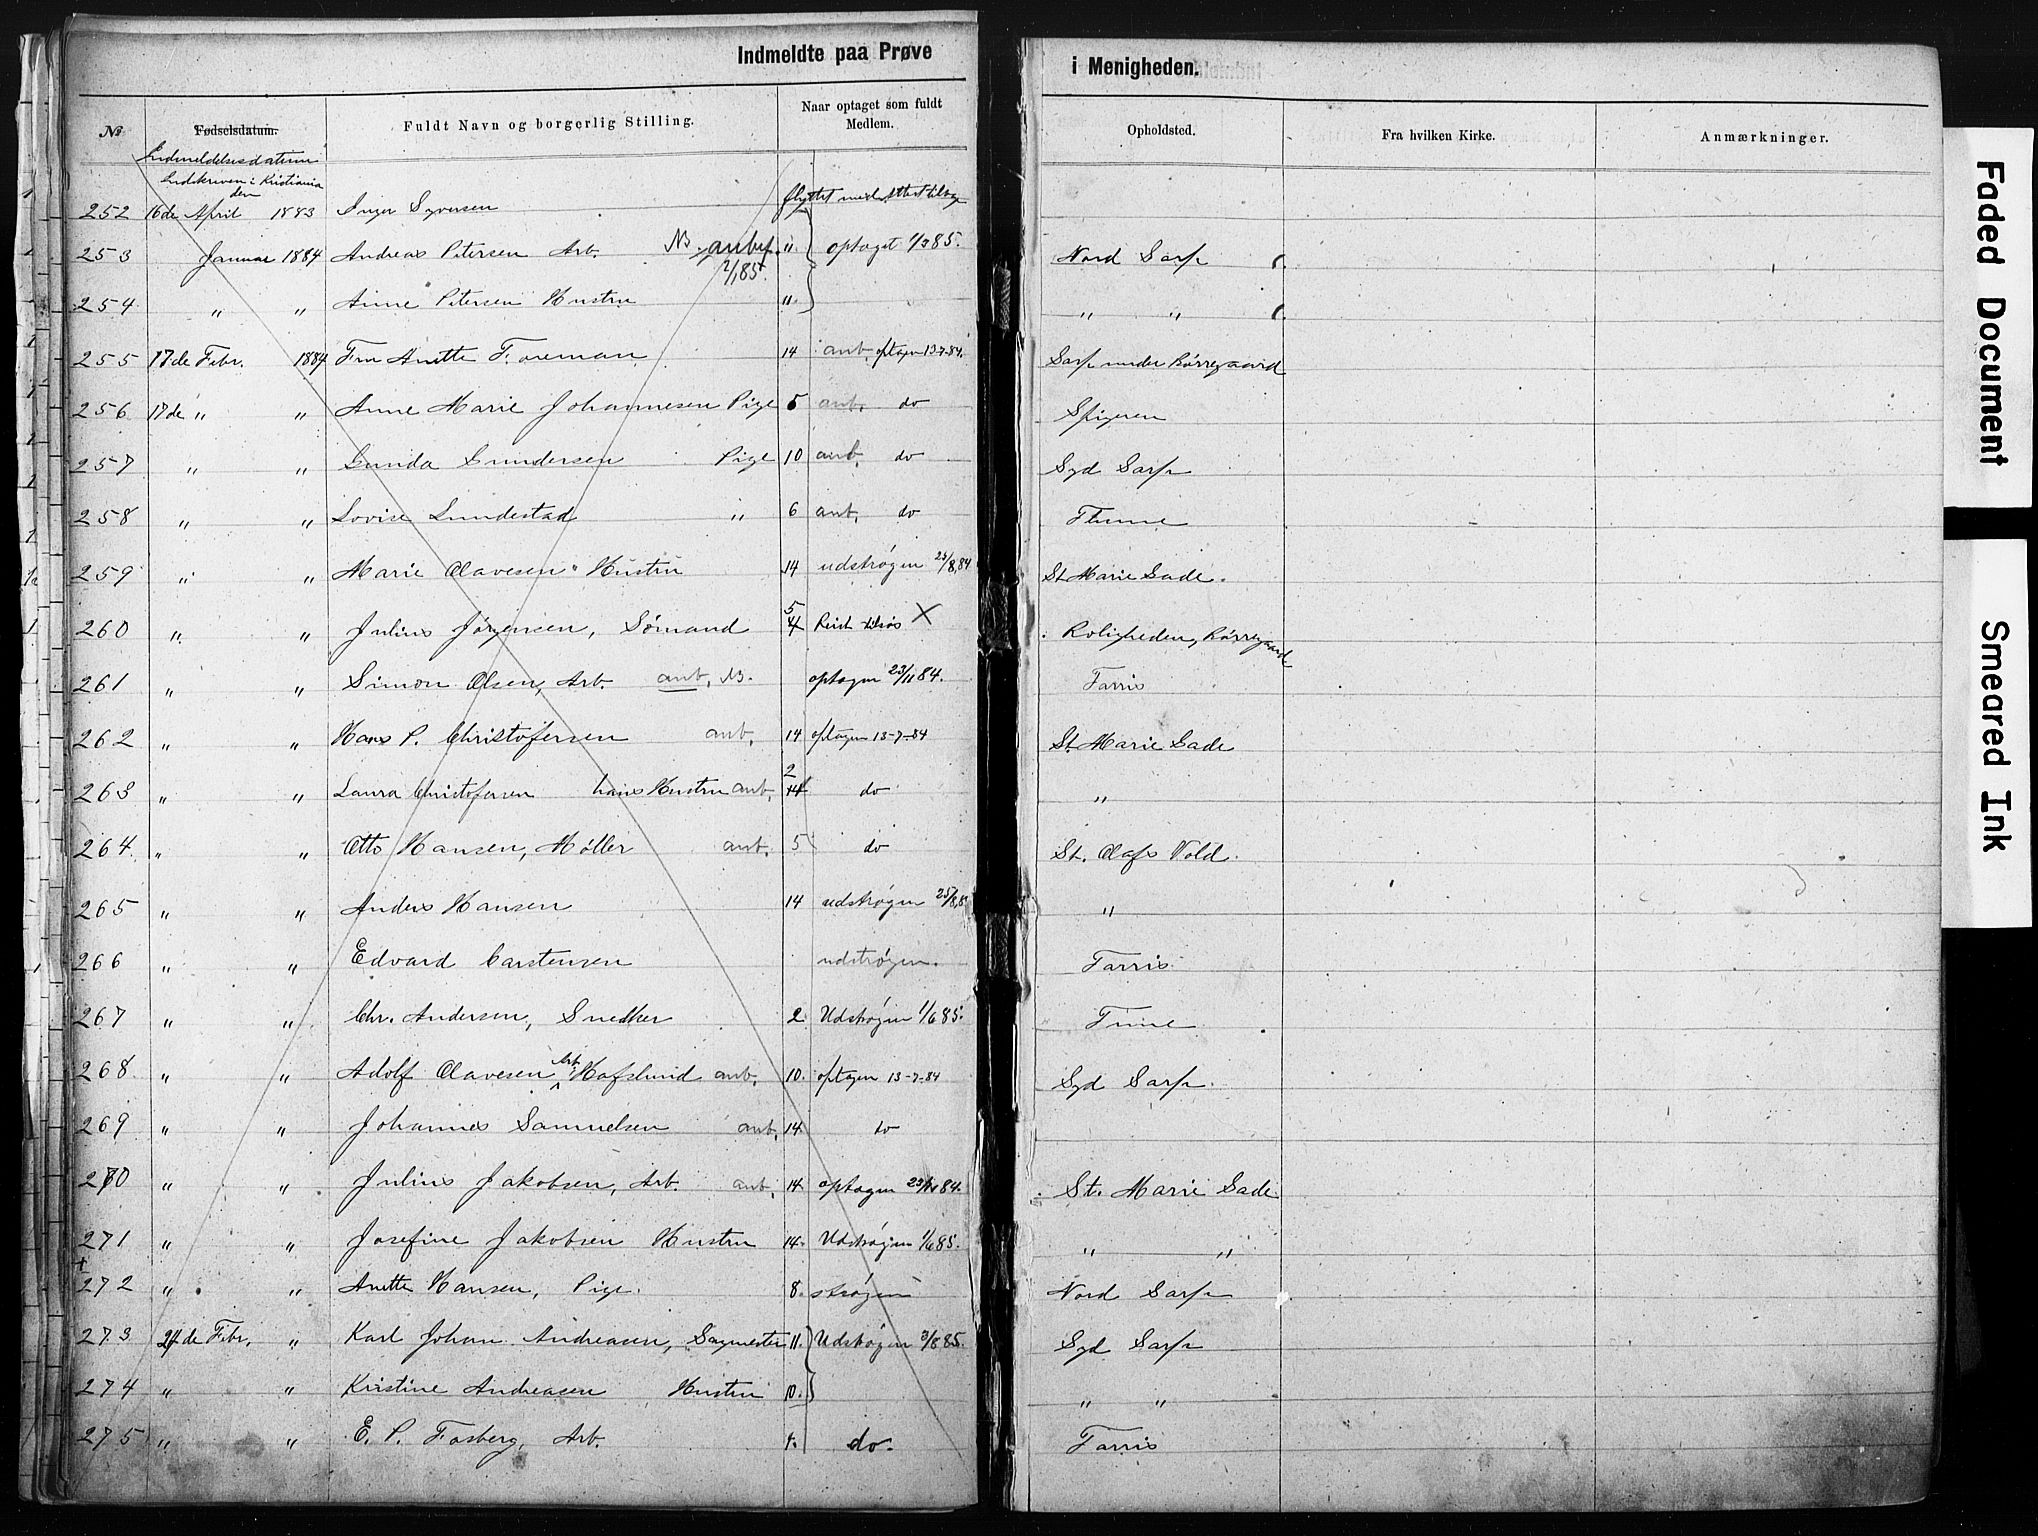 Indmeldte paa Prøve i Menigheden.
№ Fødselsdatum. Fuldt Navn og borgerlig Stilling. Naar optaget som fuldt Medlem. Opholdsted. Fra hvilken Kirke. Anmærkninger.
Indmeldelsesdatum
Indskreven i Kristiania den
252 16de April 1883 Inger Syversen flyttet med Attest tilbage
253 Januar 1884 Andreas Petersen Arb. NB. anbef. 2/1 85. " optaget 1/3 85. Nord Sarp
254 " " Anne Petersen Hustru " " "
255 17de Febr. 1884 Fru Anette Foreman 14 anb. optagen 13-7-84. Sarp under Borregaard
256 17de " " Anne Marie Johannesen Pige 5 anb. do Spigeren
257 " " Gunda Gundersen Pige 10 anb. do Syd Sarp
258 " " Lovise Lundestad " 6 anb. do Thune
259 " " Marie Olavesen Hustru 14 udstrøgen 25/8,84 St. Marie Gade.
260 " " Julius Jørgensen, Sømand 5 4 Reist tilsøs X Roligheden, Borregaard
261 " " Simon Olsen, Arb. anb. NB. optagen 23/11 84. Tarris
262 " " Hans P. Christofersen anb. 14 optagen 13-7-84 St. Marie Gade
263 " " Laura Christofersen hans Hustru anb. 2 14 do "
264 " " Otto Hansen, Møller anb. 5 do St. Olafs Vold.
265 " " Anders Hansen 14 udstrøgen 25/8,8 "
266 " " Edvard Carstensen udstrøgen. Tarris
267 " " Chr. Andersen, Snedker 2. Udstrøgen 1/6 85. Tune
268 " " Adolf Olavesen Arb. Hafslund anb. 10. optagen 13-7-84 Syd Sarp.
269 " " Johannes Samuelsen anb. 14. do
270 " " Julius Jakobsen, Arb. anb. 14. optagen 23/11 84. St. Marie Gade
271 " " Josefine Jakobsen Hustru 14. Udstrøgen 1/6 85. " "
+
272 " " Anette Hansen, Pige. 8. strøgen Nord Sarp
273 24de Febr. " Karl Johan Andreasen, Sagmester 11. Udstrøgen 3/8 85. Syd Sarp
274 " " Kristine Andreasen Hustru 10. " "
275 " " E. P. Fosberg, Arb. do. Tarris
Faded Document
Smeared Ink